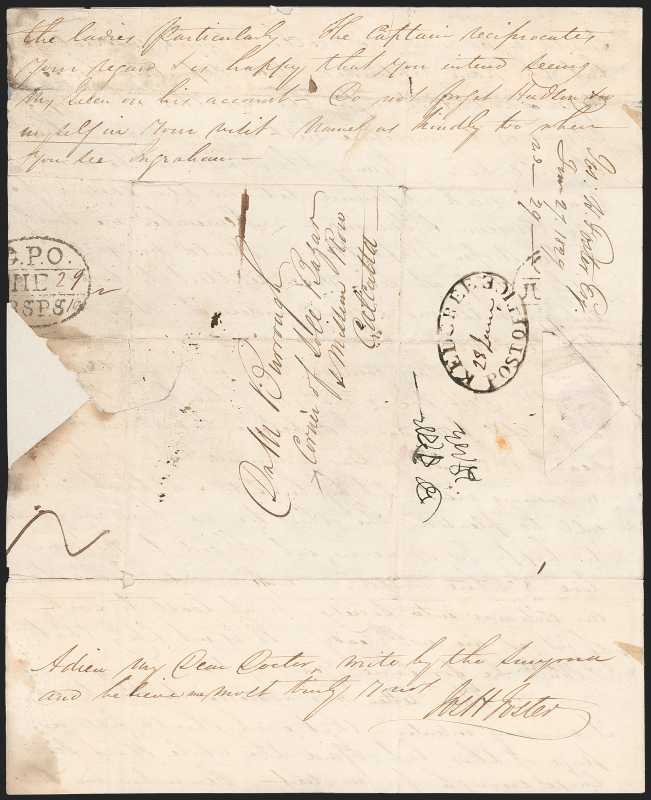 the ladies particularly - The Captain reciprocates
your regard & is happy that you intend seeing
my on his account - Do not forget &
myself in your visit - kindly too when
you see Ingraham -
G.P.O.
29
Kedgeree Post Office
28 June
Dr M Burrough
Corner of Lole Bazar
& Mission Row
Calcutta
Jos. H. Foster Esq.
June 27, 1829
" - 29 - "
Adieu my Dear Doctor, write by the Smyrna
and believe me most truly Yours
Jos H Foster